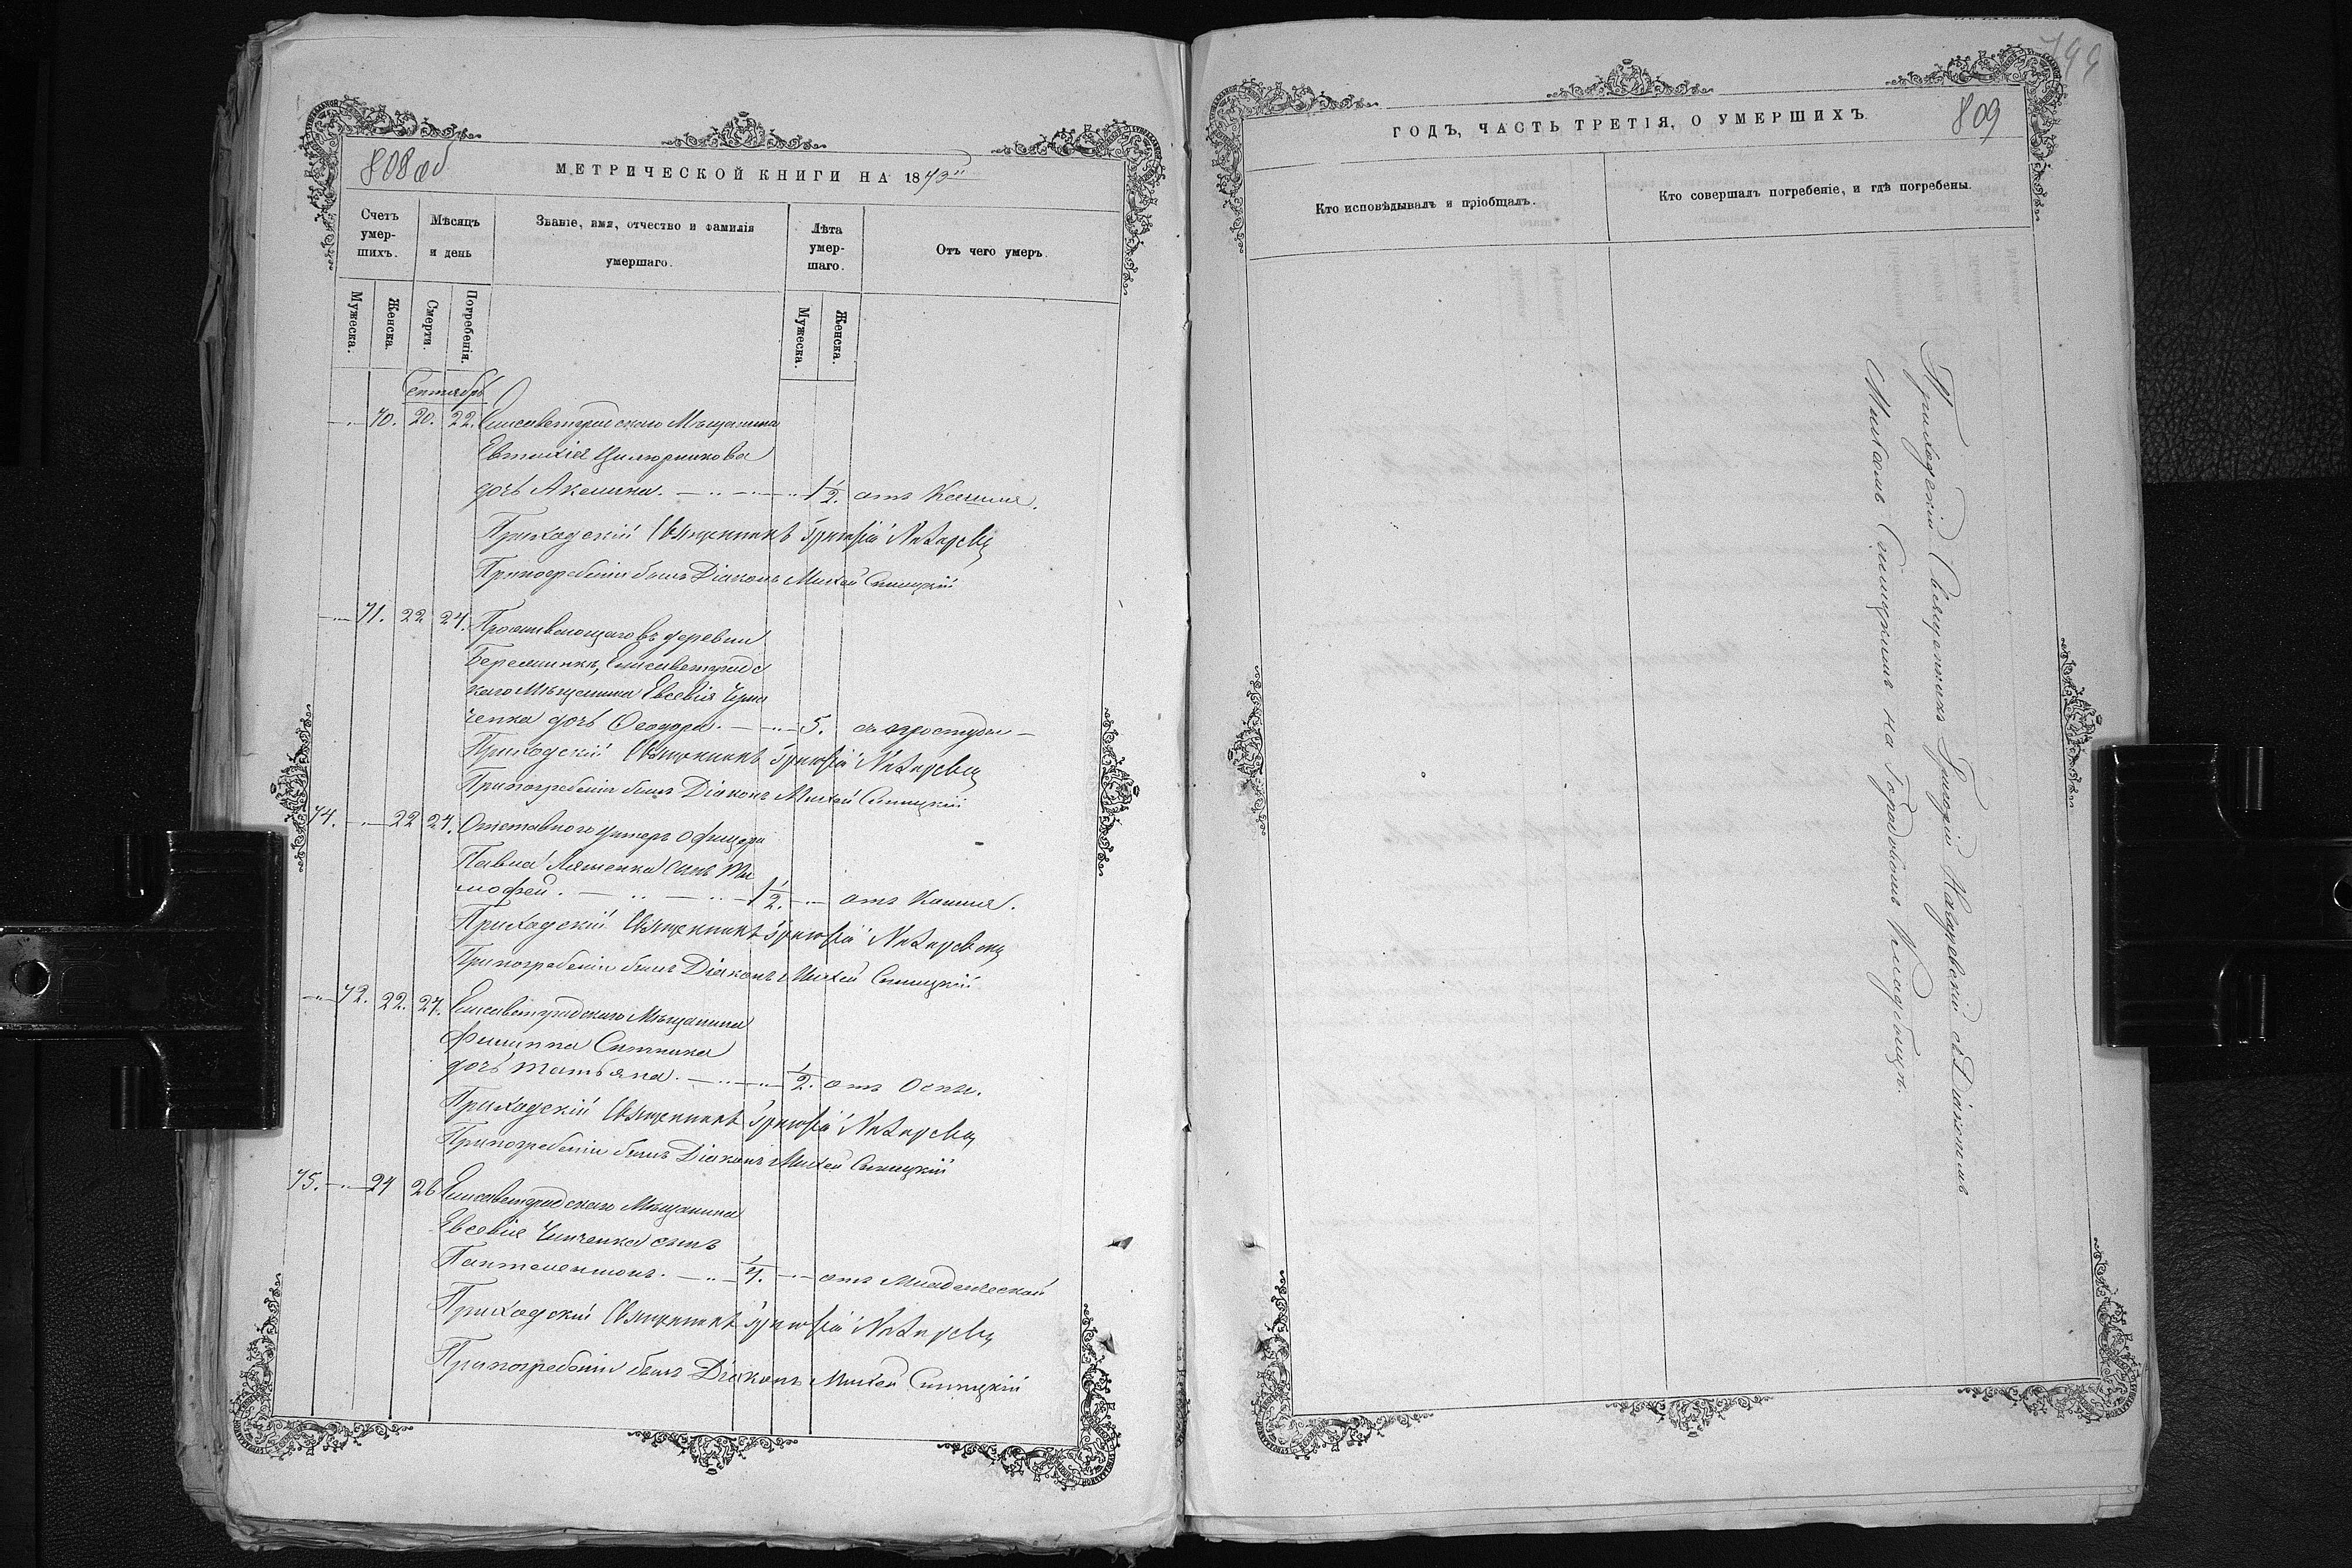 808 об
МЕТРИЧЕСКОЙ КНИГИ НА 1873
Счетъ умер-шихъ.
Мѣсяцъ и день
Званіе, имя, отчество и фамилія умершаго.
Лѣта умер-шаго.
Отъ чего умеръ.
Мужеска.
Женска.
Смерти.
Погребенія.
Мужеска.
Женска.
Сентябрь
70. 20. 22. Елисаветградскаго Мѣщанина
Евтихія Цилюрникова
дочь Акилина. 1 1/2. отъ Кашля.
Приходскій Священникъ Григорій
При погребеніи былъ Діаконъ Михаил Синицкій
71. 22 24. Проживающаго въ деревни
Елисаветградс
каго Мѣщанина Евсевія
ченка дочь Ѳеодора. 5. отъ простуды
Приходскій Священникъ Григорій
При погребеніи былъ Діаконъ Михаил Синицкій
74. 22 24. Отставного унтеръ офицера
Павла Ляшенка сынъ Ти
мофей. 1 1/2. отъ Кашля.
Приходскій Священникъ Григорій
При погребеніи былъ Діаконъ Михаил Синицкій
72. 22. 24. Елисаветградскаго Мѣщанина
Филиппа Ситника
дочь Татьяна. 1/2. отъ Оспы.
Приходскій Священникъ Григорій
При погребеніи былъ Діаконъ Михаил Синицкій
75. 24 26 Елисаветградскаго Мѣщанина
Евсевія сынъ
Пантелеимонъ. 1/4. отъ Младенческой
Приходскій Священникъ Григорій
При погребеніи былъ Діаконъ Михаил Синицкій
809
ГОДЪ, ЧАСТЬ ТРЕТІЯ, О УМЕРШИХЪ.
Кто исповѣдывалъ и пріобщалъ.
Кто совершалъ погребеніе, и гдѣ погребены.
Приходскій Священникъ Григорій съ Діакономъ
Михаиломъ Синицкимъ на Городскомъ Кладбищѣ.